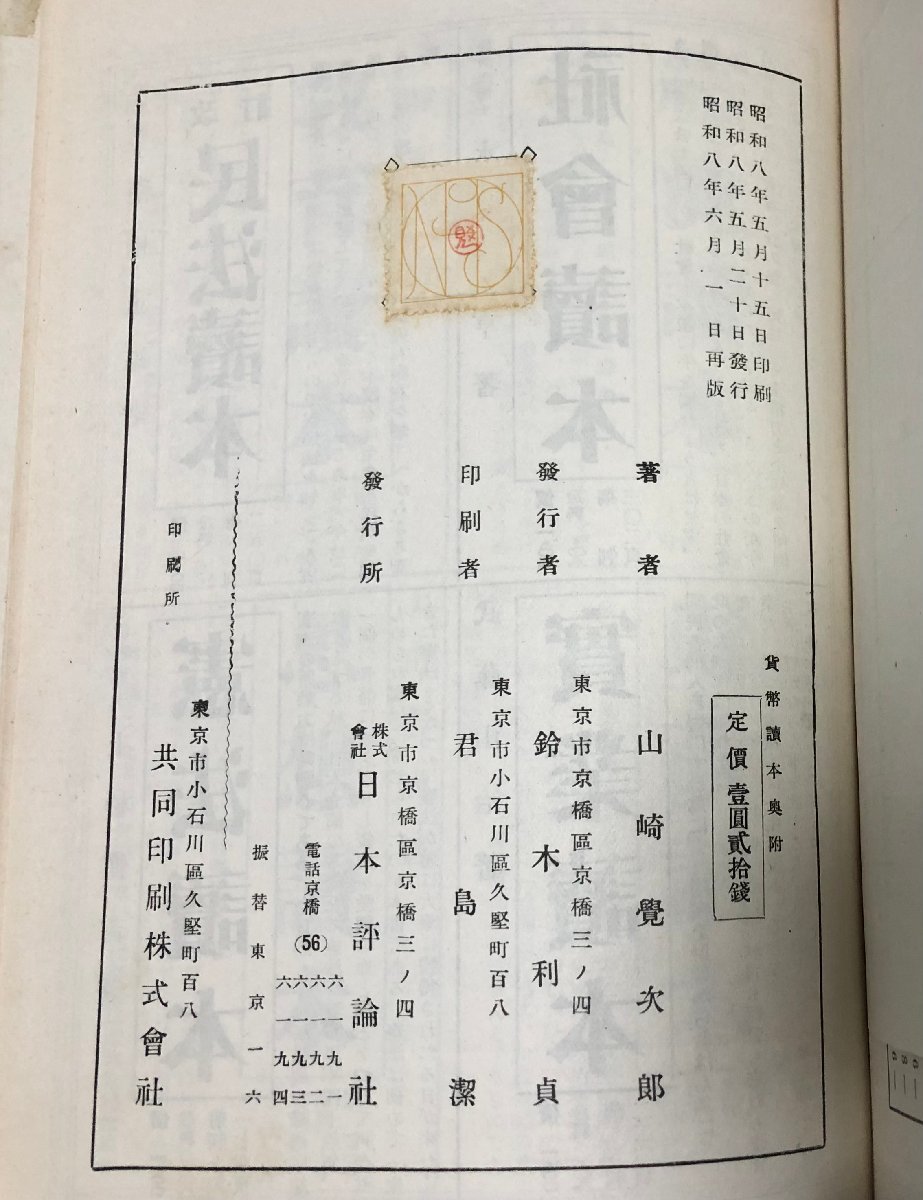 昭和八年五月十五日印刷
昭和八年五月二十日發行
昭和八年六月一日再版
貨幣讀本奧附
定價壹圓貳拾錢
著者
山崎覺次郎
發行者
東京市京橋區京橋三ノ四
鈴木利貞
印刷者
東京市小石川區久堅町百八
君島潔
發行所
東京市京橋區京橋三ノ四
株式會社日本評論社
電話京橋(56)
六一九一
六一九二
六一九三
六一九四
振替東京一六
印刷所
東京市小石川區久堅町百八
共同印刷株式會社